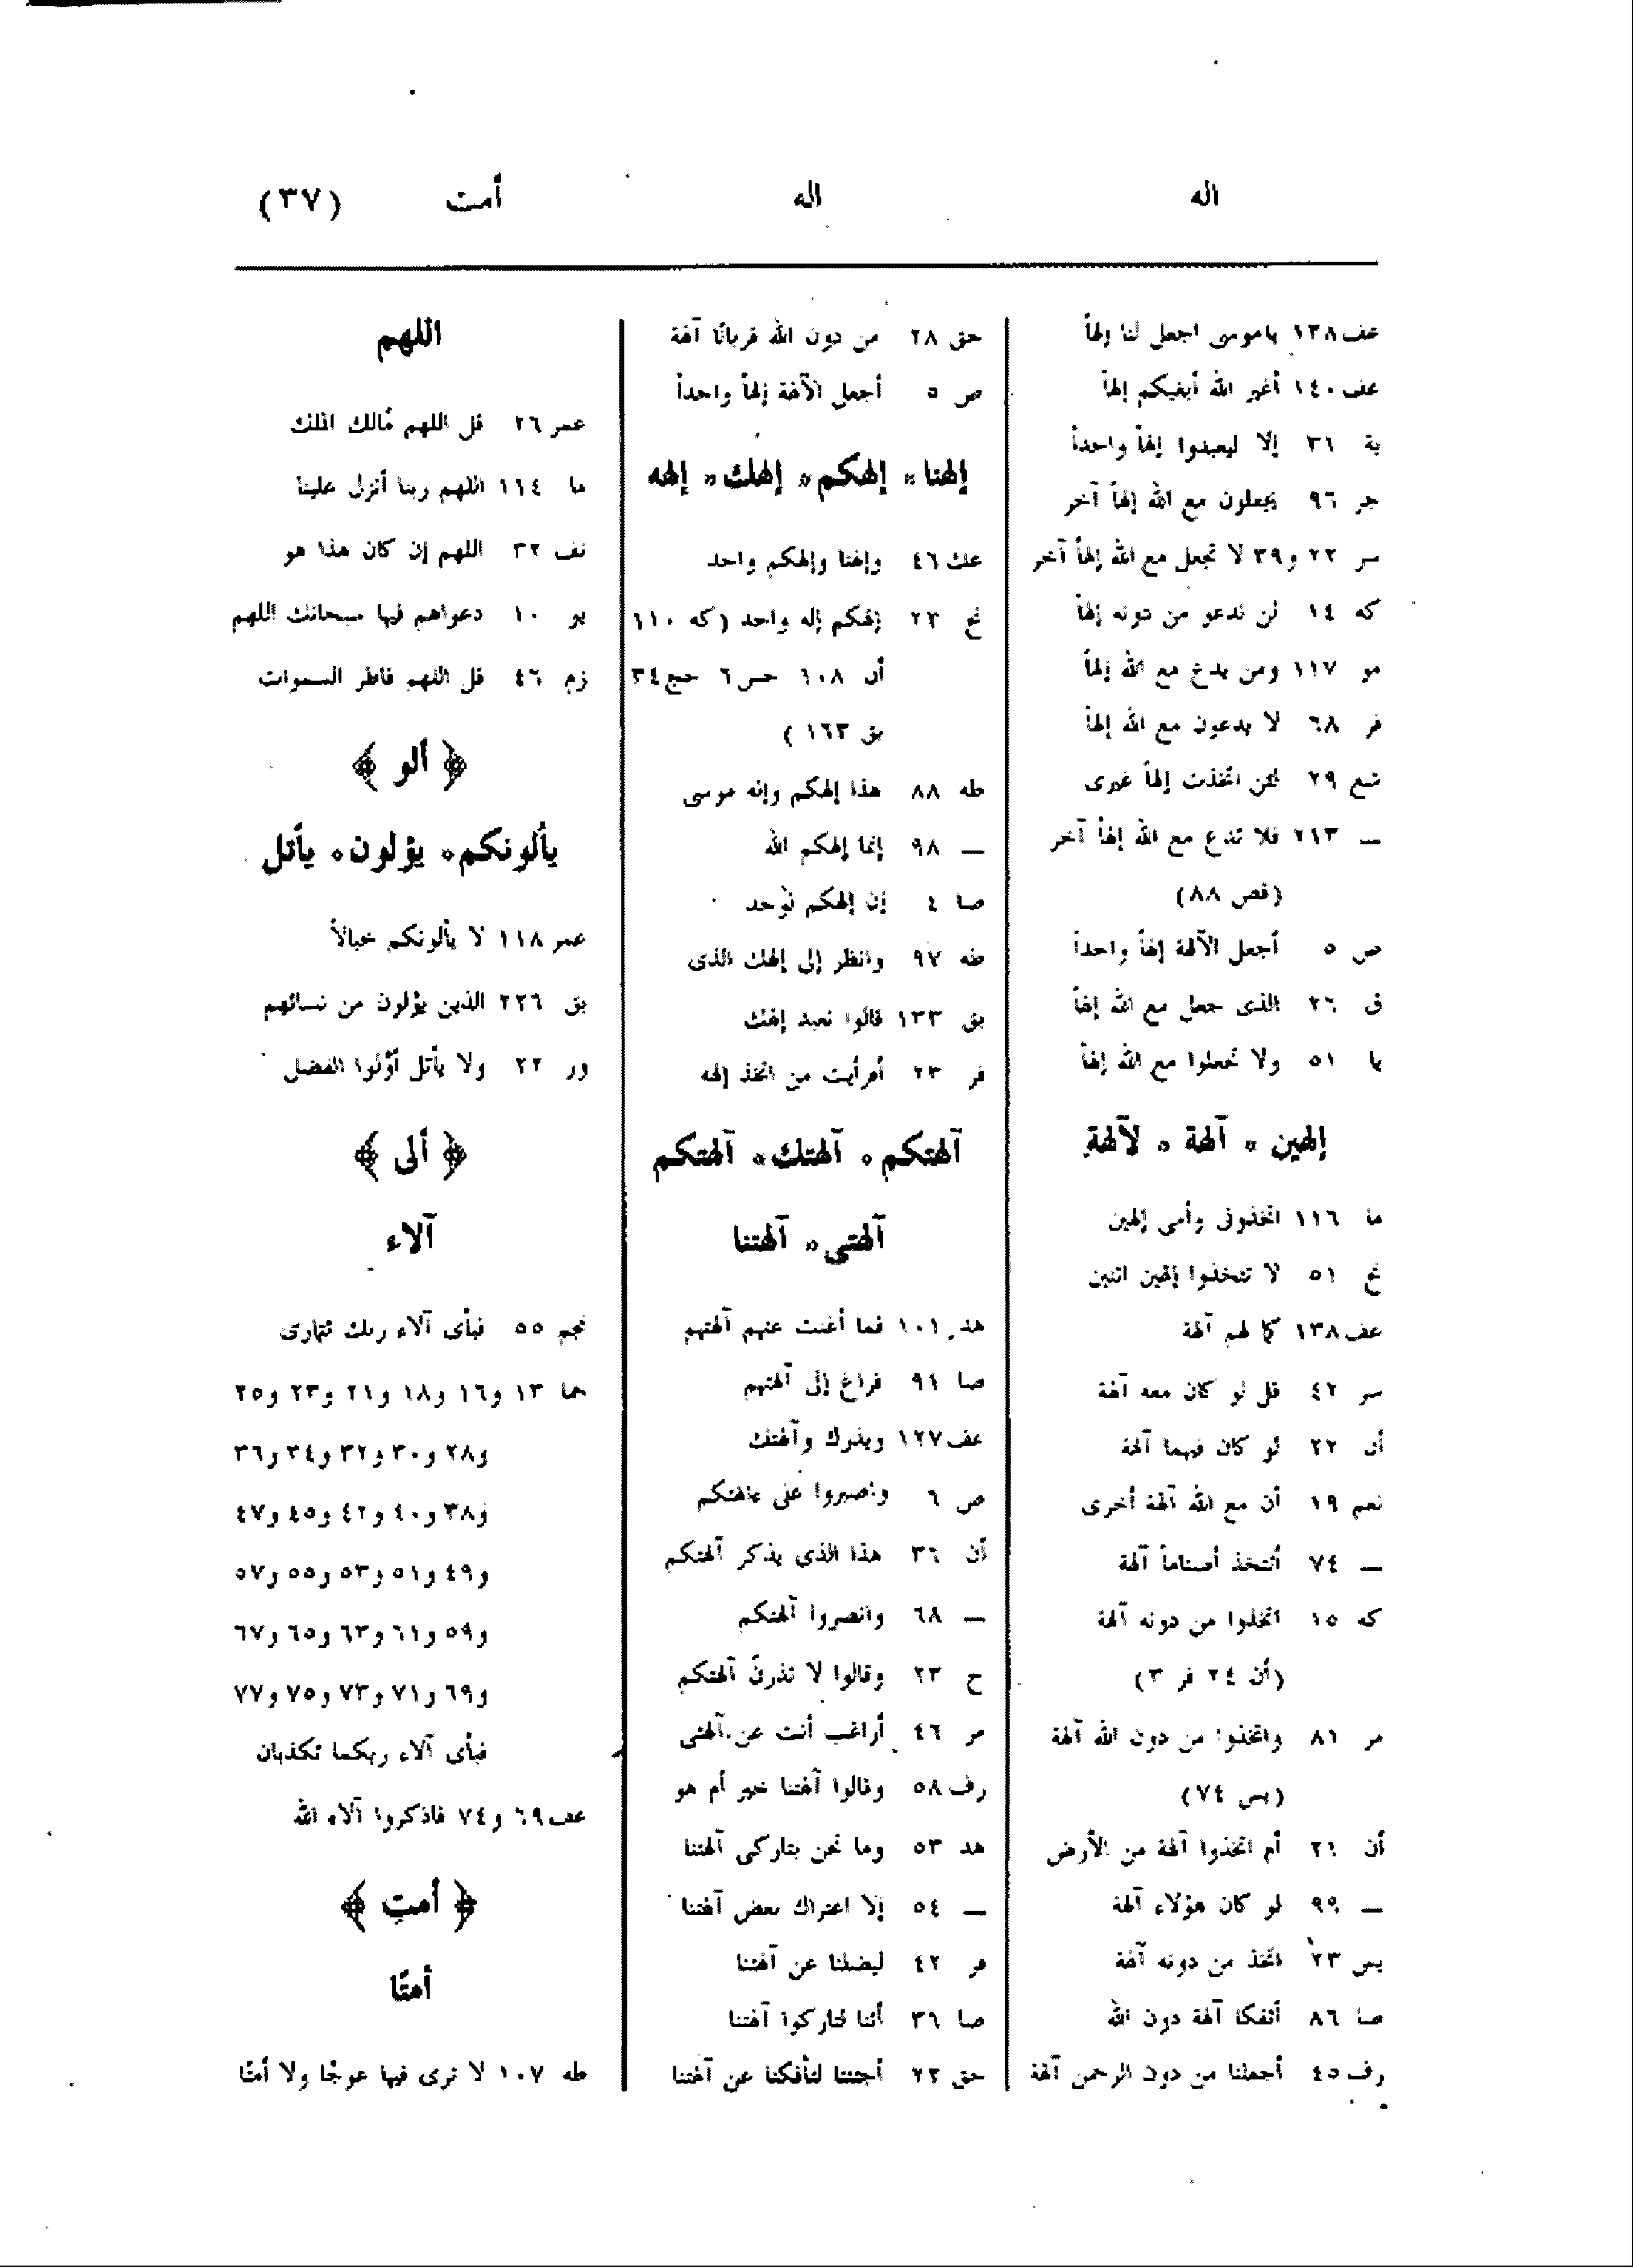 اله
اله
أمت
(٣٧)
عف ١٣٨ ياموسى اجعل لنا إلهاً
عف ١٤٠ أغير الله أبغيكم إلهاً
بة ٣١ إلا ليعبدوا إلهاً واحداً
جر ٩٦ يجعلون مع الله إلهاً آخر
سر ٢٢ و٣٩ لا تجعل مع الله إلهاً آخر
كه ١٤ لن ندعو من دونه إلهاً
مو ١١٧ ومن يدع مع الله إلهاً
فر ٦٨ لا يدعون مع الله إلهاً
شع ٢٩ لئن اتخذت إلهاً غيرى
ــ ٢١٣ فلا تدع مع الله إلهاً آخر
(قص ٨٨)
ص ٥ أجعل الآلهة إلهاً واحداً
ق ٢٦ الذى جعل مع الله إلهاً
يا ٥١ ولا تجعلوا مع الله إلهاً
إلهين * آلهة * لآلهة
ما ١١٦ اتخذونى وأمى إلهين
نح ٥١ لا تتخذوا إلهين اثنين
عف ١٣٨ كما لهم آلهة
سر ٤٢ قل لو كان معه آلهة
أن ٢٢ لو كان فيهما آلهة
نعم ١٩ أن مع الله آلهة أخرى
ــ ٧٤ أتتخذ أصناماً آلهة
كه ١٥ اتخذوا من دونه آلهة
(أن ٢٤ فر ٣)
مر ٨١ واتخذوا من دون الله آلهة
(يس ٧٤)
أن ٢١ أم اتخذوا آلهة من الأرض
ــ ٩٩ لو كان هؤلاء آلهة
يس ٢٣ اتخذ من دونه آلهة
صا ٨٦ أئفكا آلهة دون الله
رف ٤٥ أجعلنا من دون الرحمن آلهة
حق ٢٨ من دون الله قرباناً آلهة
ص ٥ أجعل الآلهة إلهاً واحداً
إلهنا * إلهكم * إلهك * إلهه
عك ٤٦ وإلهنا وإلهكم واحد
نح ٢٣ إلهكم إله واحد (كه ١١٠
أن ١٠٨ حس ٦ حج ٣٤
بق ١٦٣)
طه ٨٨ هذا إلهكم وإله موسى
ــ ٩٨ إنما إلهكم الله
صا ٤ إن إلهكم لوحد
طه ٩٧ وانظر إلى إلهك الذى
بق ١٣٣ قالوا نعبد إلهك
فر ٢٣ أفرأيت من اتخذ إلهه
آلهتكم * آلهتك * آلهتكم
آلهتى * آلهتنا
هد ١٠١ فما أغنت عنهم آلهتهم
صا ٩١ فراغ إلى آلهتهم
عف ١٢٧ ويذرك وآلهتك
ص ٦ واصبروا على ءالهتكم
أن ٣٦ هذا الذى يذكر آلهتكم
ــ ٦٨ وانصروا آلهتكم
ح ٢٣ وقالوا لا تذرنّ آلهتكم
مر ٤٦ أراغب أنت عن آلهتى
رف ٥٨ وقالوا آلهتنا خير أم هو
هد ٥٣ وما نحن بتاركى آلهتنا
ــ ٥٤ إلا اعتراك بعض آلهتنا
فر ٤٢ ليضلنا عن آلهتنا
صا ٣٦ أئنا لتاركوا آلهتنا
حق ٢٢ أجئتنا لتأفكنا عن آلهتنا
اللهم
عمر ٢٦ قل اللهم مالك الملك
ما ١١٤ اللهم ربنا أنزل علينا
نف ٣٢ اللهم إن كان هذا هو
يو ١٠ دعواهم فيها سبحانك اللهم
زم ٤٦ قل اللهم فاطر السموات
﴿ ألو ﴾
يألونكم * يؤلون * يأتل
عمر ١١٨ لا يألونكم خبالاً
بق ٢٢٦ الذين يؤلون من نسائهم
ور ٢٢ ولا يأتل أولوا الفضل
﴿ ألى ﴾
آلاء
نجم ٥٥ فبأى آلاء ربك تتمارى
حما ١٣ و١٦ و١٨ و٢١ و٢٣ و٢٥
و٢٨ و٣٠ و٣٢ و٣٤ و٣٦
و٣٨ و٤٠ و٤٢ و٤٥ و٤٧
و٤٩ و٥١ و٥٣ و٥٥ و٥٧
و٥٩ و٦١ و٦٣ و٦٥ و٦٧
و٦٩ و٧١ و٧٣ و٧٥ و٧٧
فبأى آلاء ربكما تكذبان
عف ٦٩ و٧٤ فاذكروا آلاء الله
﴿ أمت ﴾
أمتًا
طه ١٠٧ لا ترى فيها عوجًا ولا أمتًا